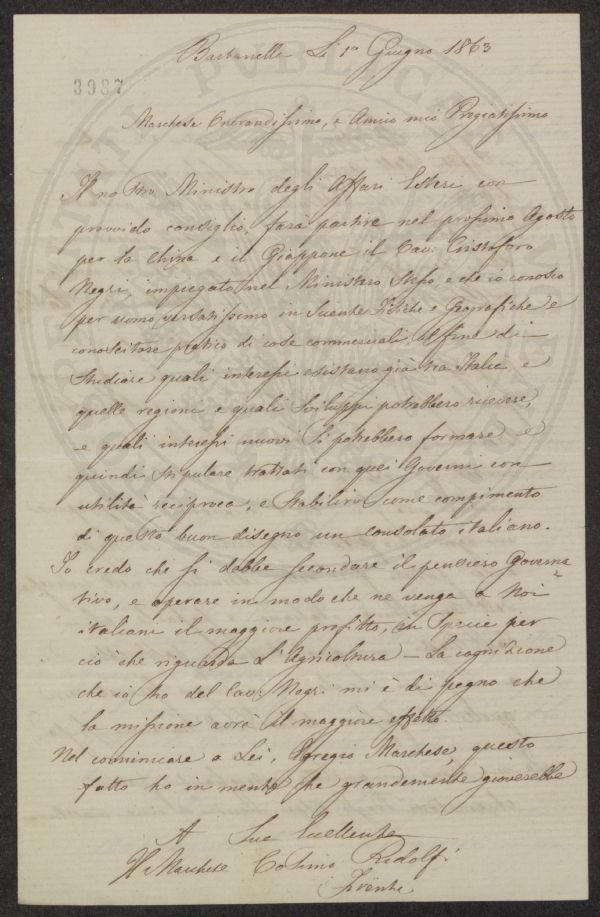 Barbanella Li 10 Giugno 1863
3987
Marchese Onorandissimo, e Amico mio Pregiatissimo
Il no Stro Ministro degli Affari Esteri con
provvido consiglio, farà partire nel prossimo Agosto
per la China e il Giappone il Cav. Cristoforo
Negri, impiegato nel Ministero stesso e che io conosco
per uomo versatissimo in Scienze Fisiche e Geografiche e
conoscitore pratico di cose commerciali al fine di
Studiare quali interessi esistano già tra Italia e
quelle regioni e quali sviluppi potrebbero ricevere,
e quali interessi nuovi si potrebbero formare e
quindi stipulare trattati con quei Governi con
utilità reciproca, e Stabilire come compimento
di questo buon disegno un consolato italiano.
Io credo che si debbe secondare il pensiero Governa
tivo, e operare in modo che ne venga a Noi
italiani il maggiore profitto, in Specie per
ciò che riguarda L'Agricoltura – La cognizione
che io ho del Cav. Negri mi è di pegno che
la missione avrà il maggiore effetto.
Nel cominicare a Lei, Egregio Marchese, questo
fatto ho in mente che grandemente gioverebbe
A Sua Eccellenza
Il Marchese Cosimo Ridolfi
Firenze